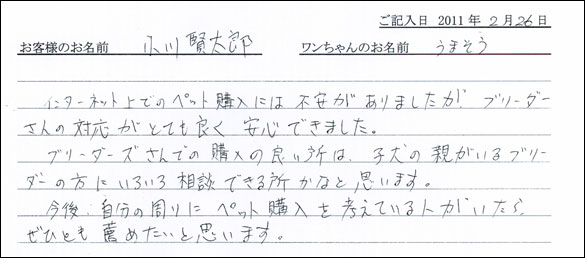 ご記入日 2011年 2月 26日
お客様のお名前 小川 賢太郎 ワンちゃんのお名前 うまそう
インターネット上でのペット購入には 不安がありましたが、ブリーダー
さんの対応がとても良く 安心できました。
ブリーダーズさんでの購入の良い所は、子犬の親がいるブリー
ダーの方にいろいろ相談できる所かなと思います。
今後、自分の周りに ペット購入を考えている人がいたら
ぜひとも薦めたいと思います。